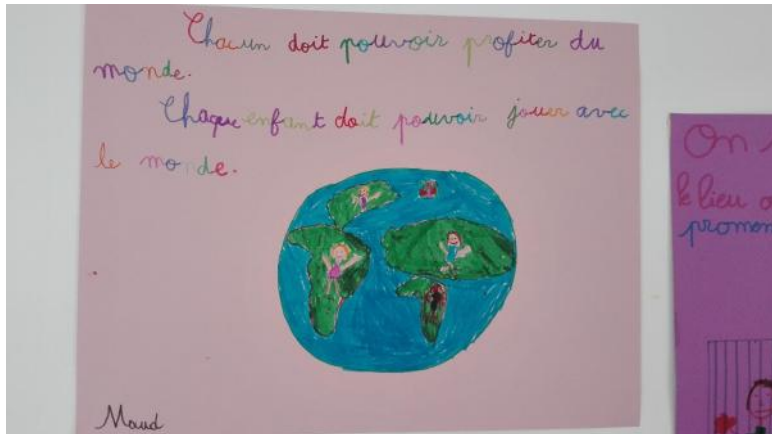 Chacun doit pouvoir profiter du
monde.
Chaque enfant doit pouvoir jouer avec
le monde.
Maud
On
le lieu